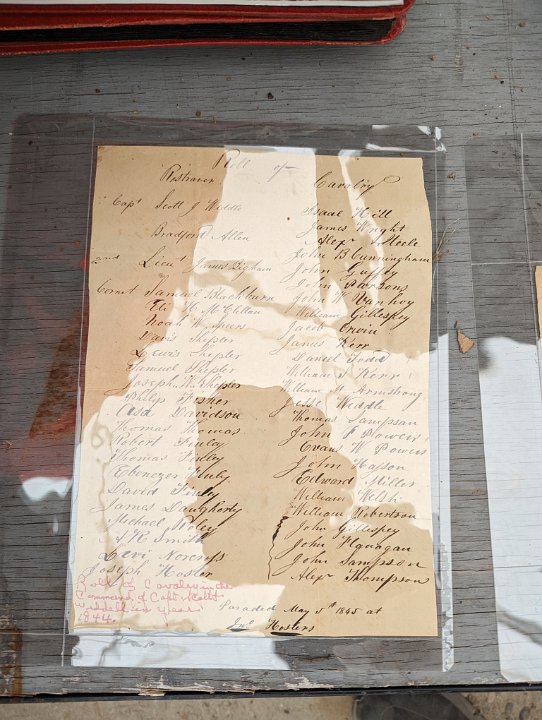 Roll of
Rostraver Cavalry
Capt Scott J Weddle
Bradford Allen
2nd Lieu James Bigham
Cornet Samuel Blackburn
Eli H. McClellan
Noah W. Speers
Davis Shepler
Lewis Shepler
Samuel Shepler
Joseph W. Shepler
Philip Fisher
Asa Davidson
Thomas Thomas
Robert Finley
Thomas Finley
Ebenezer Finley
David Finley
James Daugherty
Michael
Smith
Levi Norcross
Joseph Hosler
Isaac Hill
James Wright
Alexr Steele
John B Cunningham
John Guffey
John Parsons
John Vanhoy
William Gillespey
Jacob Erwin
James Kerr
Daniel Todd
William J Kerr
William Armstrong
Jesse Weddle
Thomas Sampson
John F Plowers
Evans W Power
John Hason
Edward Miller
William Welsh
William Robertson
John Gillespey
John Flanagan
John Sampson
Alexr Thompson
Roll of Cavalry in the
Command of Capt Scott
Weddell in Year
1844.
Paraded May 5th 1845 at
Jno Hoslers